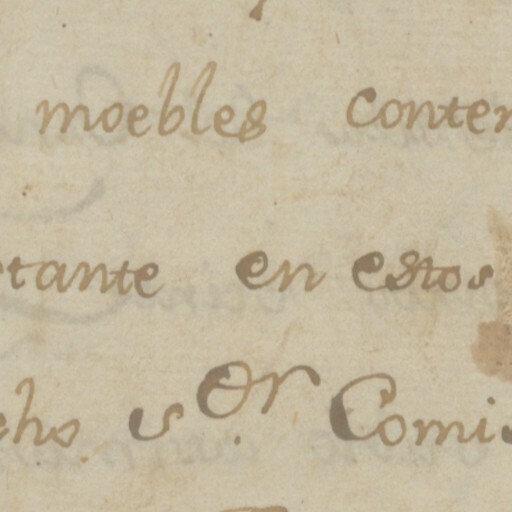 moebles conten
tante en estos
cho sor Comis